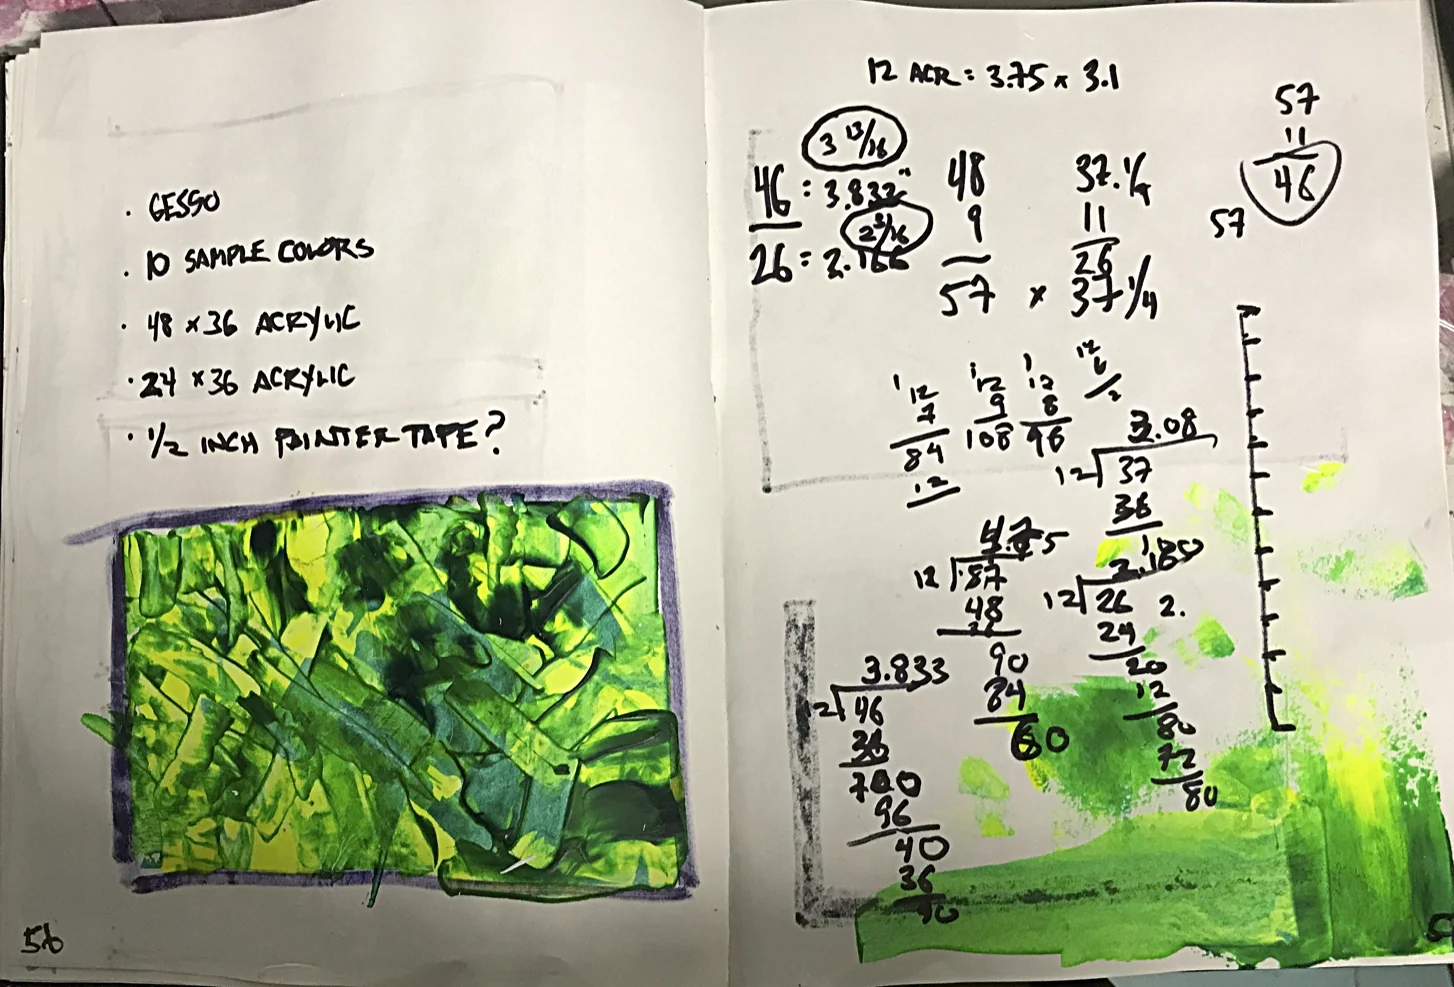 · GESSO
· 10 SAMPLE COLORS
· 48 x 36 ACRYLIC
· 24 x 36 ACRYLIC
· 1/2 INCH PAINTER TAPE?
56
12 ACR = 3.75 x 3.1
57
11
46
57
3 13/16
46 = 3.832"
26 = 2.166
48
9
57 x 37 1/4
37. 1/4
11
26
1
12
7
84
12
1
12
9
108
1
12
8
96
12
6
3.08
12 37
36
1
12 57
48
90
84
60
2.180
12 26
24
20
12
80
72
80
2.
3.833
12 46
36
100
96
40
36